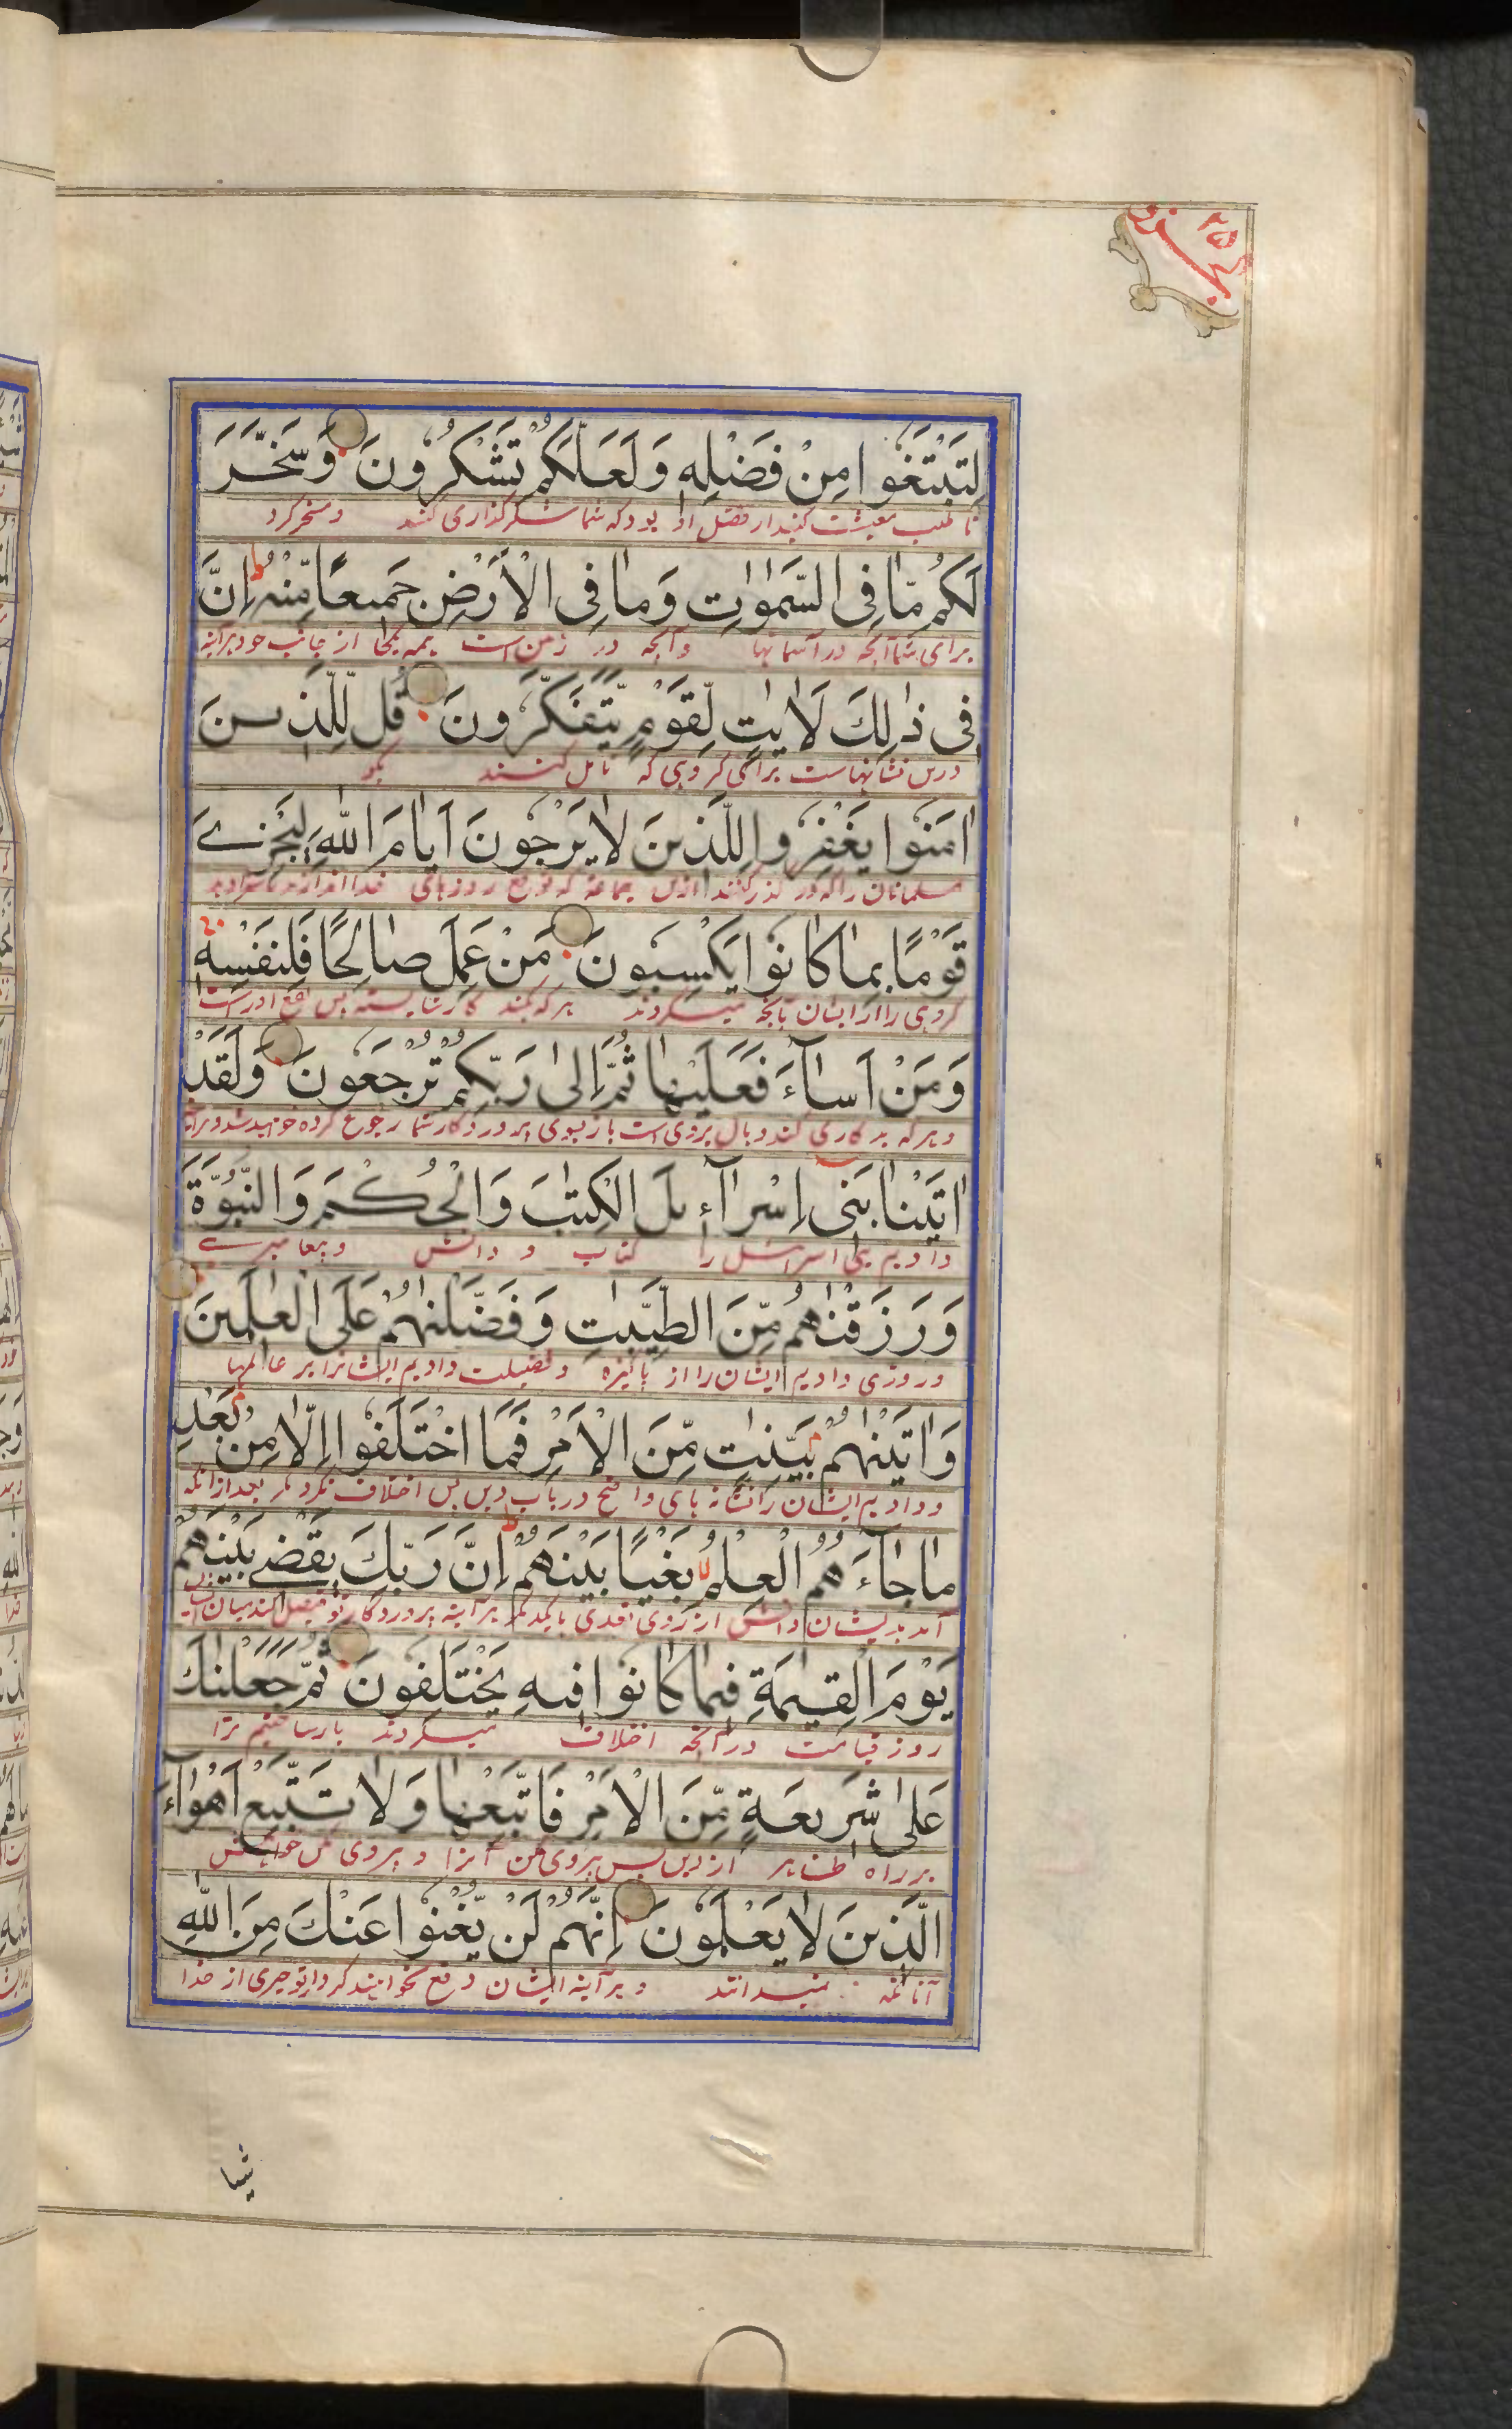 الجزو ٢٥
لِتَبْتَغُوا مِنْ فَضْلِهٖ وَلَعَلَّكُمْ تَشْكُرُونَ وَسَخَّرَ
تا طلب معیشت کنید از فضل او بود که شما شکرگذاری کنید و مسخر کرد
لَكُمْ مَّا فِی السَّمٰوٰتِ وَمَا فِی الْاَرْضِ جَمِیعًا مِّنْهُ ط اِنَّ
برای شما آنچه در آسمانها و آنچه در زمین است همه یکجا از جانب خود هرآینه
فِی ذٰلِكَ لَاٰیٰتٍ لِّقَوْمٍ یَّتَفَكَّرُونَ قُلْ لِّلَّذِینَ
درین نشانهاست برای گروهی که تامل کنند بگو
اٰمَنُوا یَغْفِرُوا لِلَّذِینَ لَا یَرْجُونَ اَیَّامَ اللّٰهِ لِیَجْزِےَ
مسلمانان را که در گذر کنند ازین جماعه که توقع روزهای خدا
قَوْمًا بِمَا كَانُوا یَكْسِبُونَ مَنْ عَمِلَ صَالِحًا فَلِنَفْسِهٖ
گروهی را از ایشان بآنچه میکردند هر که بکند کار شایسته پس نفع او راست
وَمَنْ اَسَآءَ فَعَلَیْهَا ثُمَّ اِلٰی رَبِّكُمْ تُرْجَعُونَ وَلَقَدْ
و هر که بد کاری کند وبال بروی است باز بسوی پروردگار شما رجوع کرده خواهید شد
اٰتَیْنَا بَنِی اِسْرَآءِیلَ الْكِتٰبَ وَالْحُكْمَ وَالنُّبُوَّةَ
دادیم بنی اسرائیل را کتاب و دانش و پیغامبرے
وَرَزَقْنٰهُمْ مِّنَ الطَّیِّبٰتِ وَفَضَّلْنٰهُمْ عَلَی الْعٰلَمِینَ
و روزی دادیم ایشان را از پاکیزه و فضیلت دادیم ایشانرا بر عالمها
وَاٰتَیْنٰهُمْ بَیِّنٰتٍ مِّنَ الْاَمْرِ فَمَا اخْتَلَفُوا اِلَّا مِنْ بَعْدِ
و دادیم ایشان را نشانه های واضح در باب دین پس اختلاف نکردند مگر بعد از آنکه
مَا جَآءَهُمُ الْعِلْمُ لا بَغْیًا بَیْنَهُمْ ط اِنَّ رَبَّكَ یَقْضِے بَیْنَهُمْ
آمد بدیشان دانش از روی تعدی با یکدگر هرآینه پروردگار تو فیصل کند میان ایشان
یَوْمَ الْقِیٰمَةِ فِیمَا كَانُوا فِیهِ یَخْتَلِفُونَ ثُمَّ جَعَلْنٰكَ
روز قیامت در آنچه اختلاف میکردند باز ساختیم ترا
عَلٰی شَرِیعَةٍ مِّنَ الْاَمْرِ فَاتَّبِعْهَا وَلَا تَتَّبِعْ اَهْوَآءَ
بر راه ظاهر از دین پس پیروی کن آنرا و پیروی مکن خواهش
الَّذِینَ لَا یَعْلَمُونَ اِنَّهُمْ لَنْ یُّغْنُوا عَنْكَ مِنَ اللّٰهِ
آنانکه نمیدانند هرآینه ایشان دفع نخواهند کرد از تو چیزی از خدا
شیا